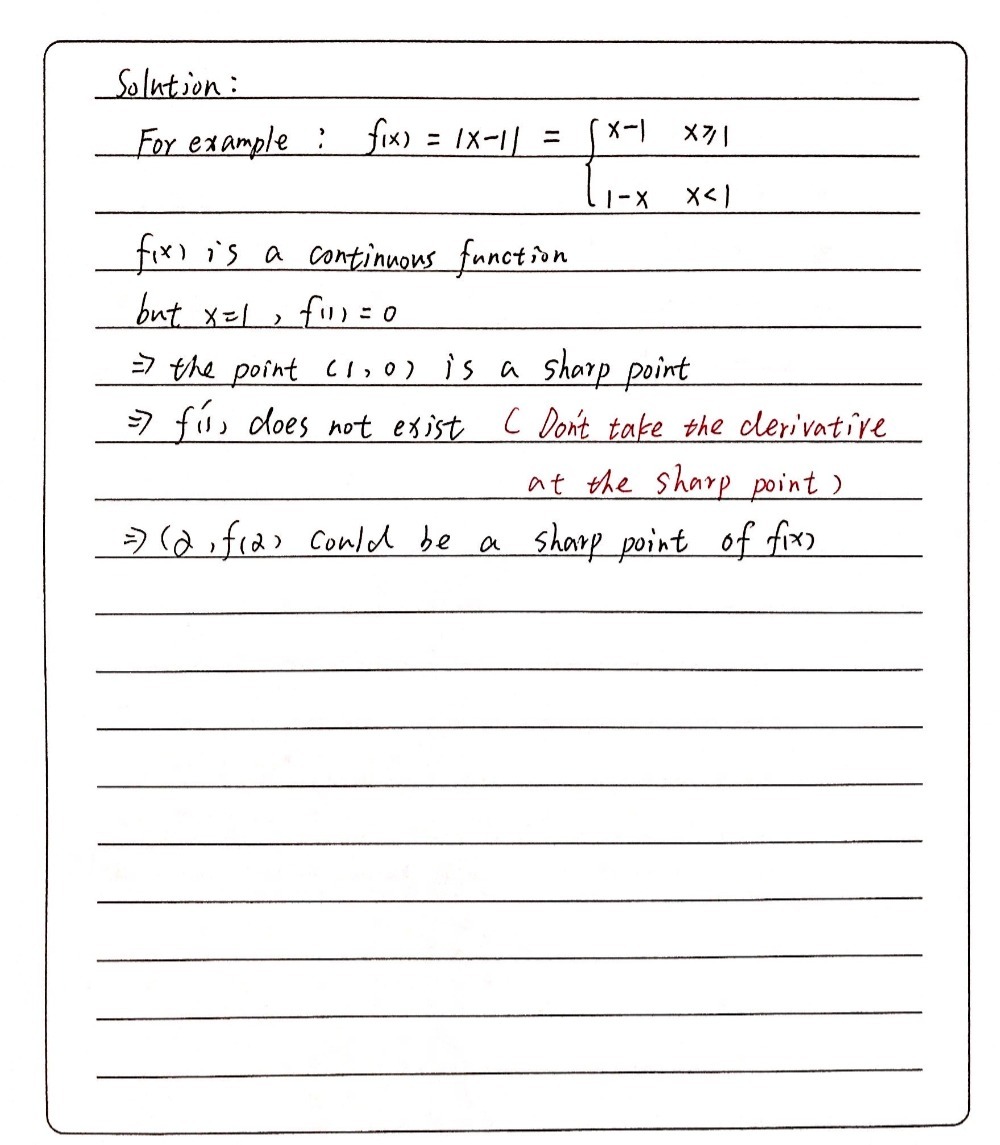 Solution:
For example : f(x) = |x-1| = { x-1 x⩾1
1-x x<1
f(x) is a continuous function
but x=1 , f(1) = 0
⇒ the point (1,0) is a sharp point
⇒ f'(1) does not exist ( Don't take the derivative
at the sharp point )
⇒ (2 , f(2) could be a sharp point of f(x)